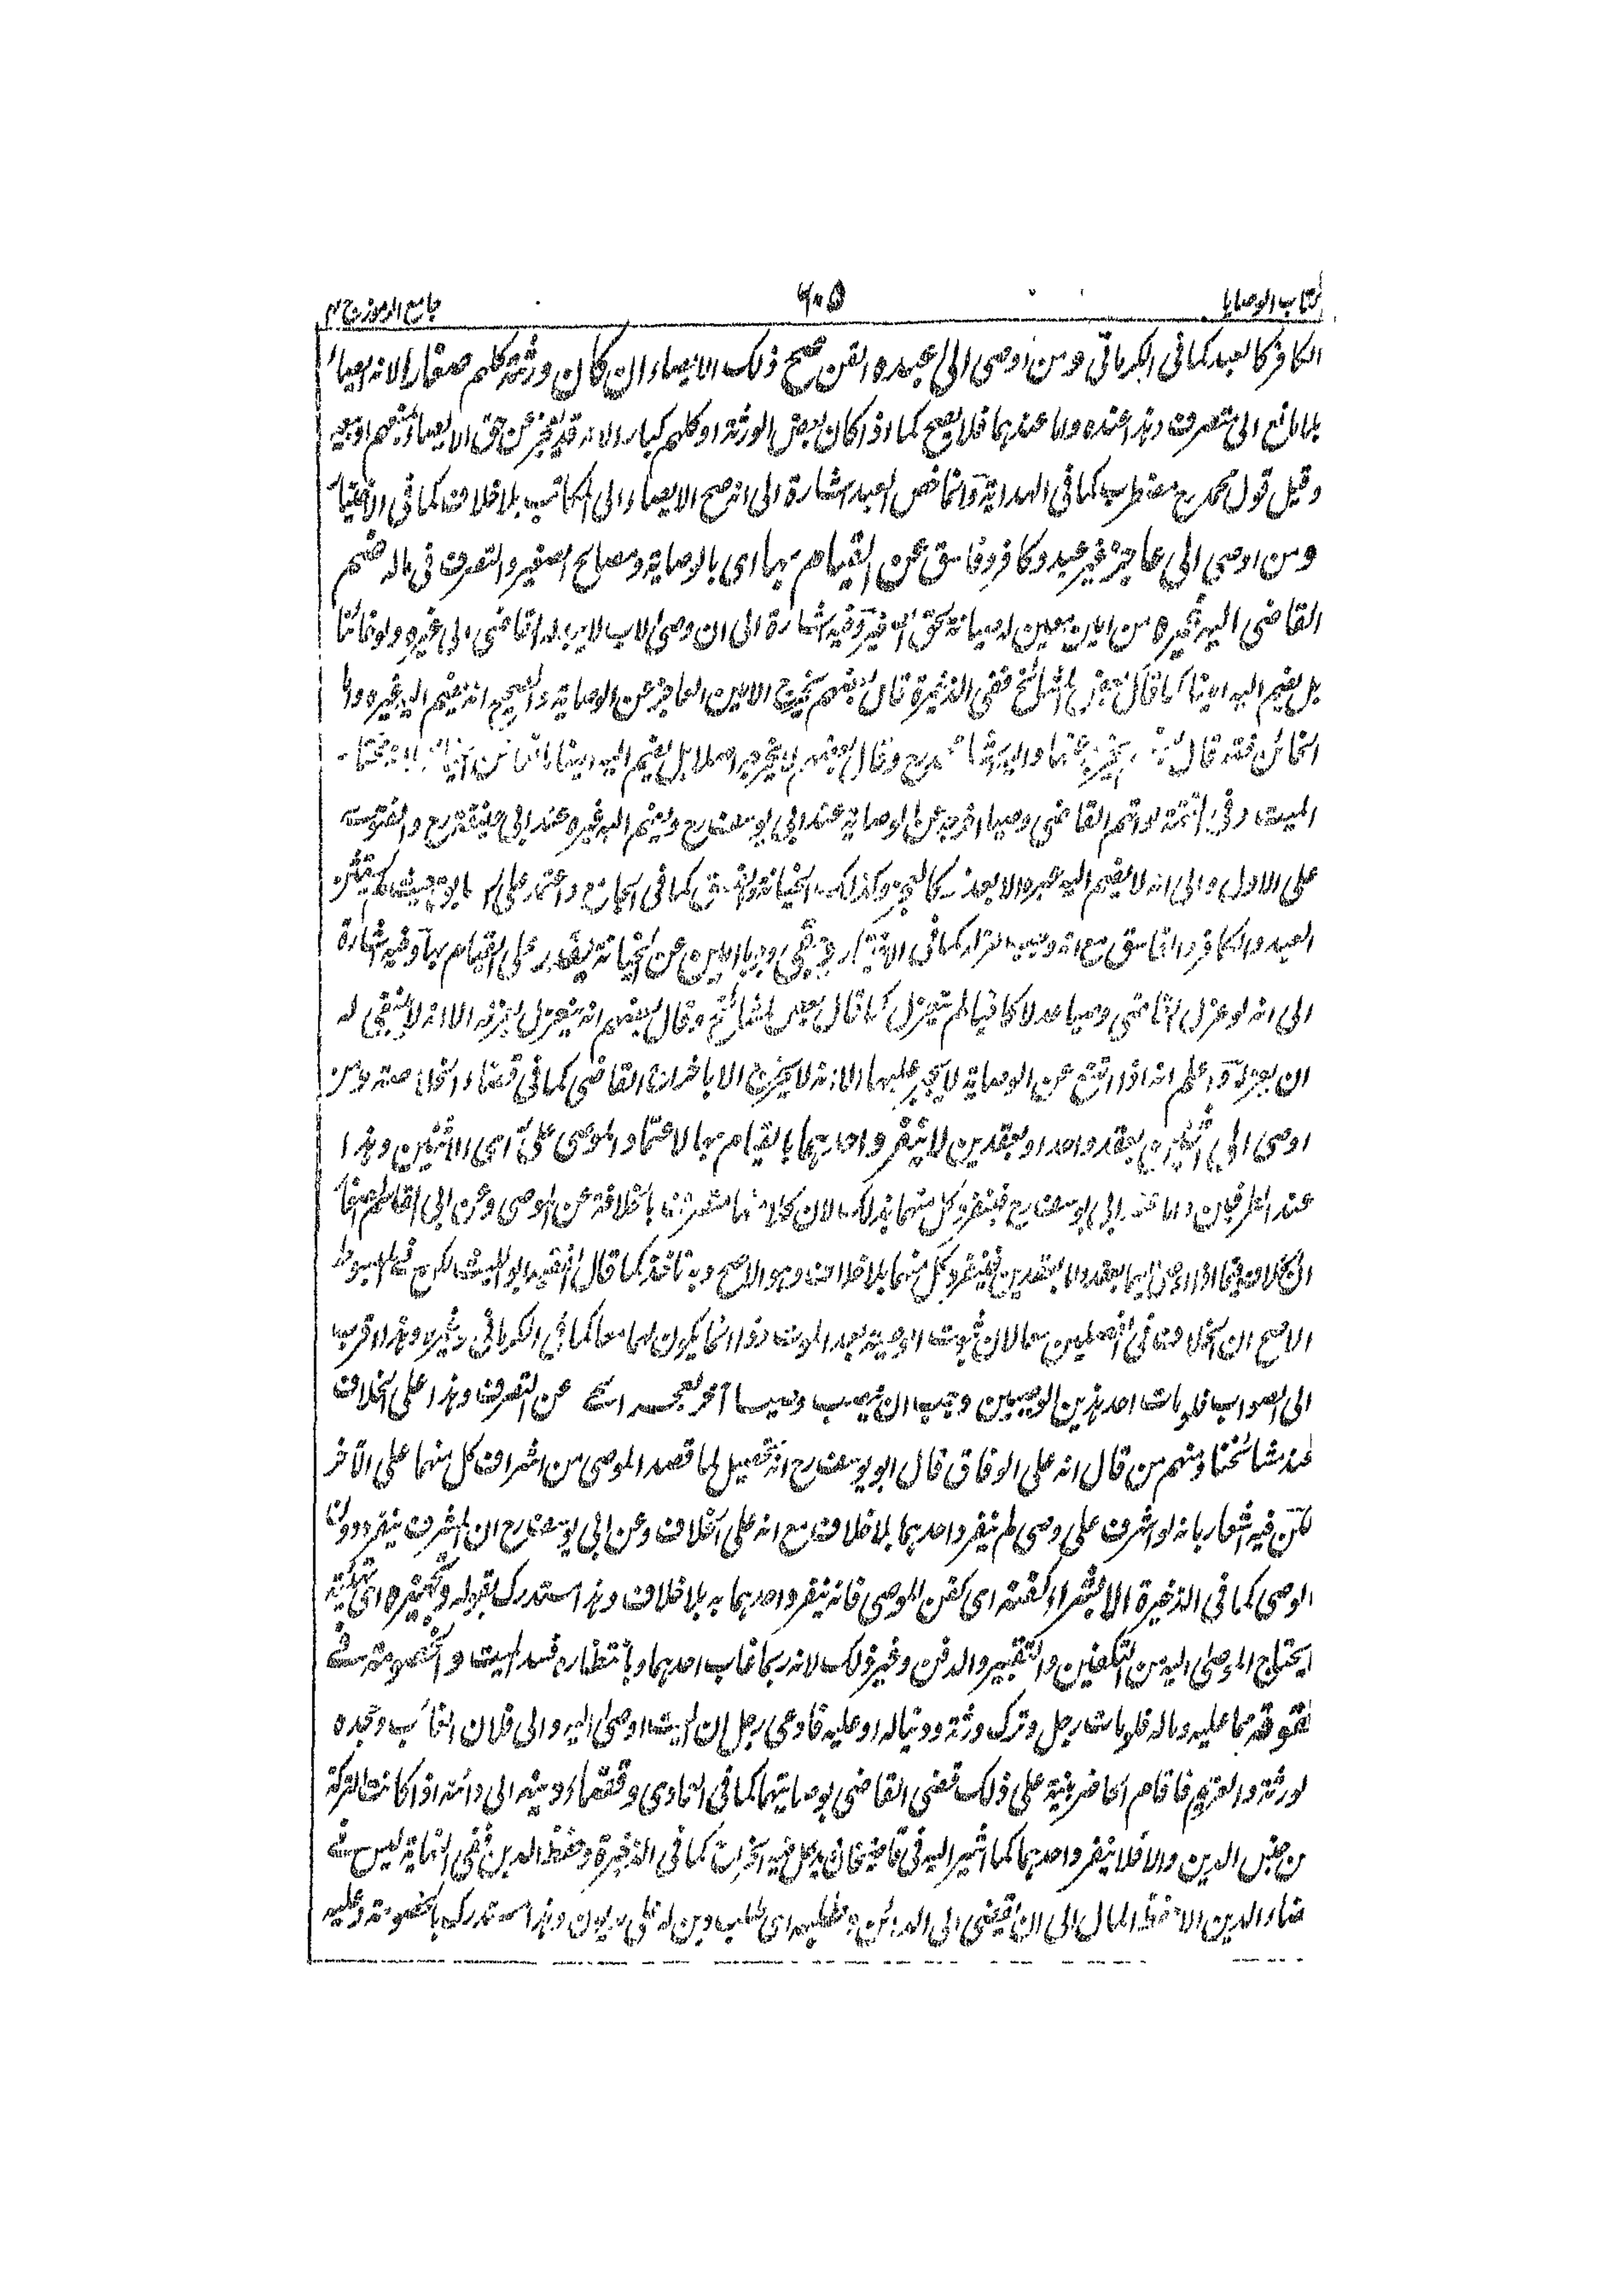 كتاب الوصايا ٦٠٥ جامع الرموز ج ٢
الكافر كالعبد كما فى الكرمانى ومن اوصى الى عبده القن صح ذلك الايصاء ان كان ورثته كلهم صغارا لانه ايصاء
بلا مانع الى متصرف وهذا عنده واما عندهما فلا يصح كما اذا كان بعض الورثة او كلهم كبارا لانه قد يعجز عن حق الايصاء
وقيل قول محمد رح مضطرب كما فى الهداية وانما خص العبد اشارة الى انه صح الايصاء الى المكاتب بلا خلاف كما فى
ومن اوصى الى عاجز غير عبد وكافر وفاسق عن القيام بها اى بالوصاية ومصالح الصغير والتصرف فى ماله ضم
القاضى اليه غيره من امين معين له صيانة لحق وفيه اشارة الى ان وصى الاب لا القاضى الى غيره ولو خائنا
بل يضم اليه امينا كما قال بعض المشائخ ففى الذخيرة قال بعضهم يخرج الامين العاجز عن الوصاية والصحيح انه يضم اليه غيره واما
الخائن فقد قال وقال بعضهم لا يخرجه اصلا بل يضم اليه امينا
الميت وفى التتمة لو اتهم القاضى وصيا اخرجه عن الوصاية عند ابى يوسف رح ويضم اليه غيره عند ابى حنيفة رح والفتوى
على الاول والى انه لا يضم اليه غيره الا بعذر كالعجز وكذلك الخيانة والفسق كما فى
العبد والكافر والفاسق مع انه كما فى الاختيار ويبقى وصيا امين عن الخيانة يقدر على القيام بها وفيه اشارة
الى انه لو عزل القاضى وصيا عدلا كافيا لم ينعزل كما قال بعض المشائخ وقال بعضهم انه ينعزل بعزله الا انه لا ينبغى له
ان يعزله واعلم انه اذا امتنع عن الوصاية لا يجبر عليها الا انه لا يخرج الا باخراج القاضى كما فى قضاء الخلاصة ومن
اوصى الى اثنين بعقد واحد او بعقدين لا ينفرد احدهما بالقيام بها لاعتماد الموصى على اى الاثنين وهذا
عند الطرفين واما عند ابى يوسف رح فينفرد كل منهما بذلك لان كلا منهما متصرف بالخلافة عن الموصى وعن ابى القاسم الصفار
ان الخلاف فيما اذا اوصى اليهما بعقد واما بعقدين فينفرد كل منهما بلا خلاف وهو الاصح وبه ناخذ كما قال الفقيه ابو الليث لكن فى المبسوط
الاصح ان الخلاف فى الفصلين معا لان ثبوت الوصية بعد الموت وذا انما يكون لهما معا كما فى الكرمانى وغيره وهذا اقرب
الى الصواب فلو مات احد هذين الوصيين وجب ان ينصب وصيا آخر لعجزه اى عن التصرف وهذا على الخلاف
عند مشائخنا ومنهم من قال انه على الوفاق قال ابو يوسف رح انه تحصيل لما قصد الموصى من اشراف كل منهما على الآخر
لكن فيه اشعار بانه لو اشرف على وصى لم ينفرد احدهما بلا خلاف مع انه على الخلاف وعن ابى يوسف رح ان المشرف ينفرد دون
الوصى كما فى الذخيرة الا بشراء كفنه اى كفن الموصى فانه ينفرد احدهما به بلا خلاف وهذا استدرك بقوله وتجهيزه اى تهيئة
يحتاج الموصى اليه من التكفين والتقبير والدفن وغير ذلك لانه ربما غاب احدهما وبانتظاره فسد الميت والخصومة فى
حقوقه مما عليه وماله فلو مات رجل وترك ورثة ودينا له او عليه فادعى رجل ان الميت اوصى اليه والى فلان الغائب وجحده
الورثة والغريم فاقام الحاضر بينة على ذلك قضى القاضى بوصايتهما كما فى العمادى وقضاء دينه الى دائنه اذا كانت التركة
من جنس الدين والا فلا ينفرد احدهما كما اشير اليه فى قاضيخان كما فى الذخيرة وحفظ الدين ففى النهاية ليس فى
قضاء الدين الا حفظ المال الى ان يقضى الى الدائن وطلبه اى طلب دين له على مديون وهذا استدرك بالخصومة وعليه